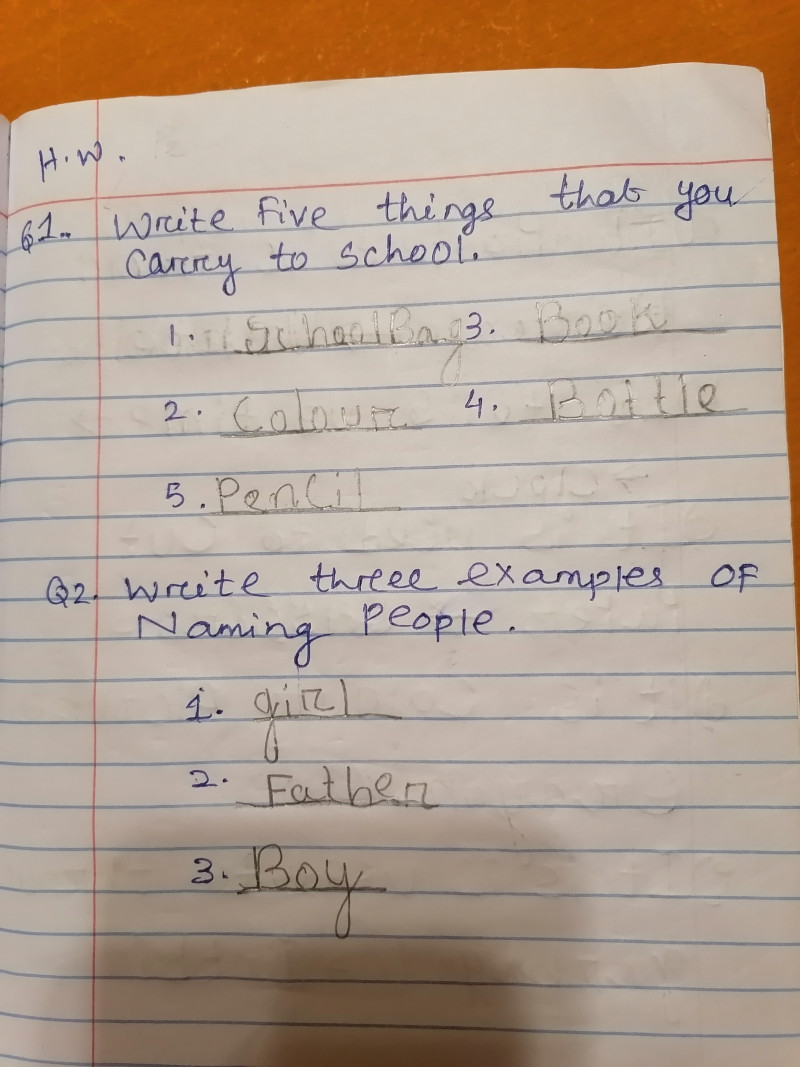 H.W.
Q1. Write Five things that you
Carry to school.
1. School Bag 3. Book
2. Colour 4. Bottle
5. Pencil
Q2. Write three examples OF
Naming People.
1. girl
2. Father
3. Boy